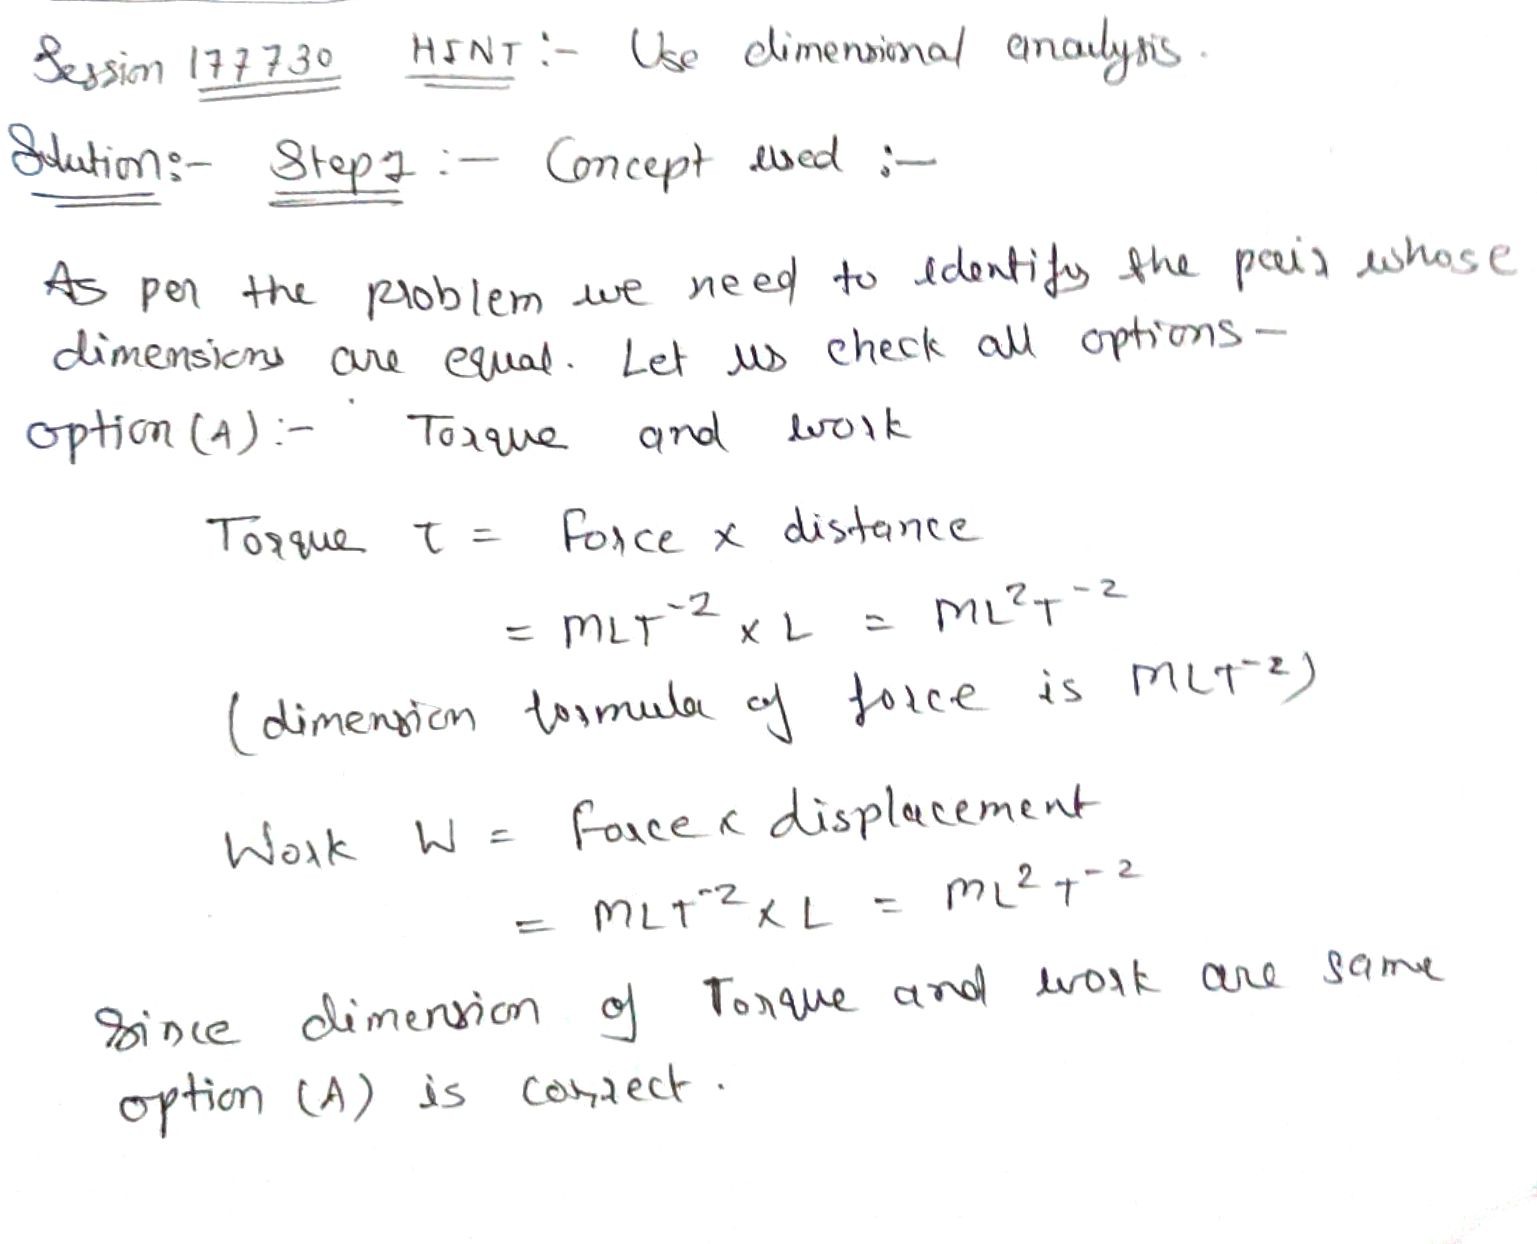 Session 177730 HINT :- Use dimensional analysis.
Solution:- Step 1 :- Concept used :-
As per the problem we need to identify the pair whose
dimensions are equal. Let us check all options -
option (A) :- Torque and work
Torque τ = force x distance
= MLT⁻² x L = ML²T⁻²
(dimension formula of force is MLT⁻²)
Work W = force x displacement
= MLT⁻² x L = ML²T⁻²
Since dimension of Torque and work are same
option (A) is correct.